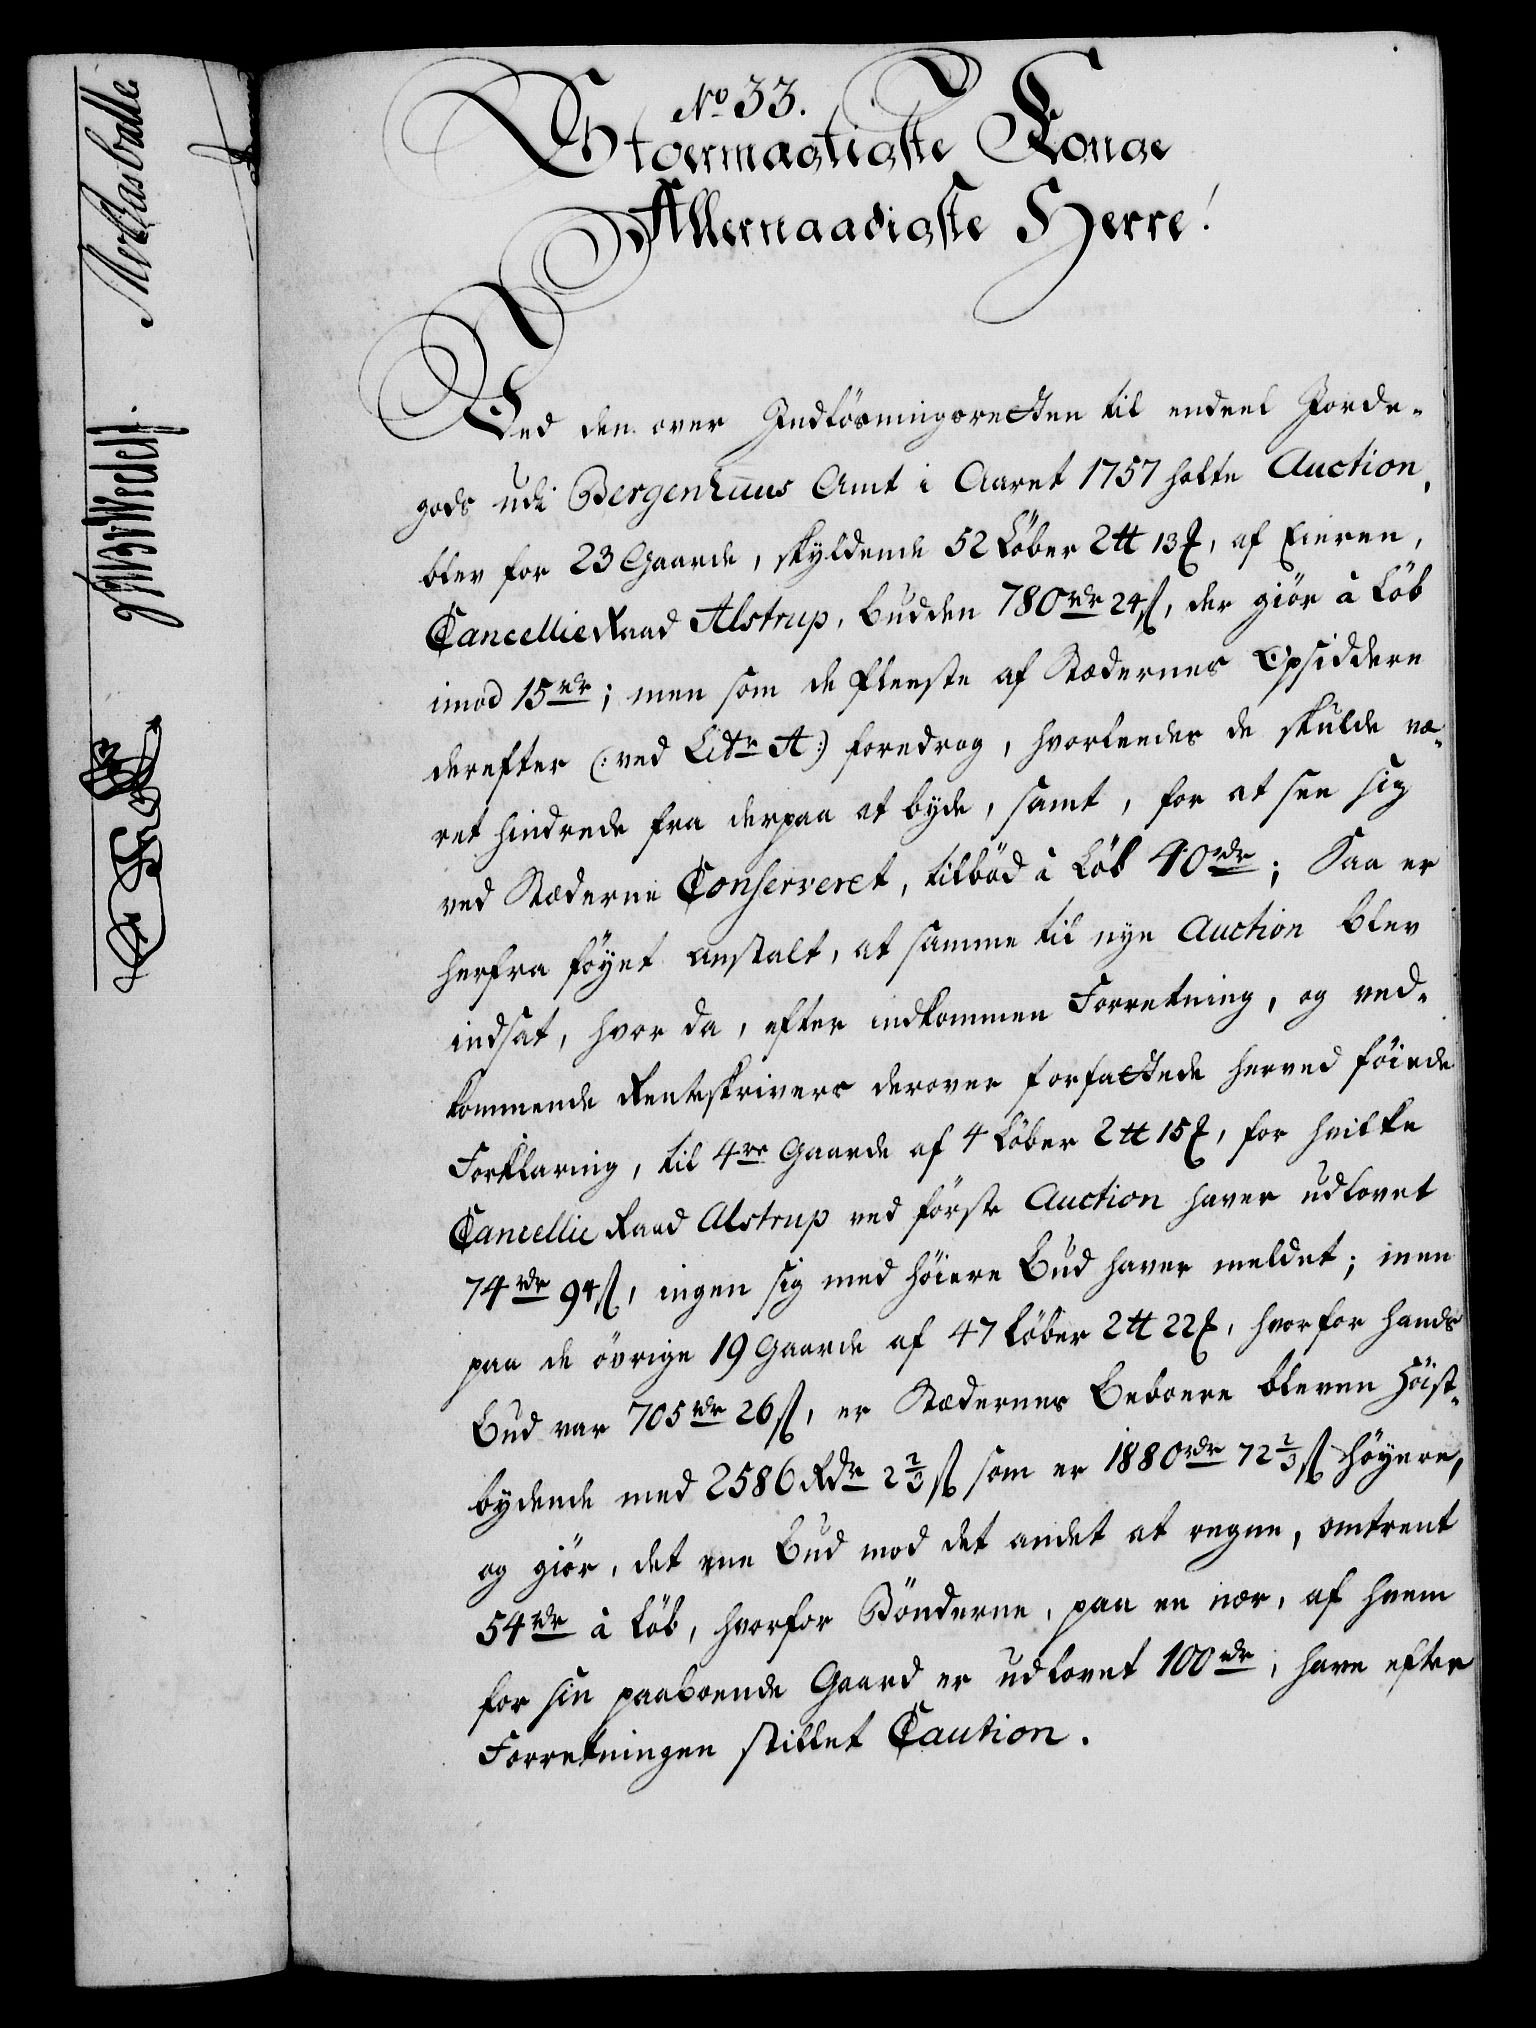 No 33.
Stormægtigste Konge
Allernaadigste Herre!
Ved den over Indløsningsretten til endeel Jorde-
gods udi Bergenhuus Amt i Aaret 1757 holte Auction,
blev for 23 Gaarde, skyldende 52 Løber 2 ℔ 13 ℥, af Eieren,
CancellieRaad Alstrup, budden 780 rdr 24 ß, der giør à Løb
imod 15 rdr; men som de fleeste af Stædernes Opsiddere
derefter (: ved Litr A :) foredrog, hvorledes de skulde væ-
ret hindrede fra derpaa at byde, samt, for at see sig
ved Stæderne Conserveret, tilbød à Løb 40 rdr; Saa er
herfra føyet anstalt, at samme til nye Auction blev
indsat, hvor da, efter indkommen Forretning, og ved-
kommende Renteskrivers derover forfattede herved føiede
Forklaring, til 4re Gaarde af 4 Løber 2 ℔ 15 ℥, for hvilke
Cancellie Raad Alstrup ved første Auction haver udlovet
74 rdr 94 ß, ingen sig med høiere Bud haver meldet; men
paa de øvrige 19 Gaarde af 47 Løber 2 ℔ 22 ℥, hvorfor hands
Bud var 705 rdr 26 ß, er Stædernes Beboere bleven Høist-
bydende med 2586 Rdr 2 2/3 ß som er 1880 rdr 72 2/3 ß høyere,
og giør, det ene Bud mod det andet at regne, omtrent
54 rdr à Løb, hvorfor Bønderne, paa en nær, af hvem
for sin paaboende Gaard er udlovet 100 rdr, have efter
Forretningen stillet Caution.